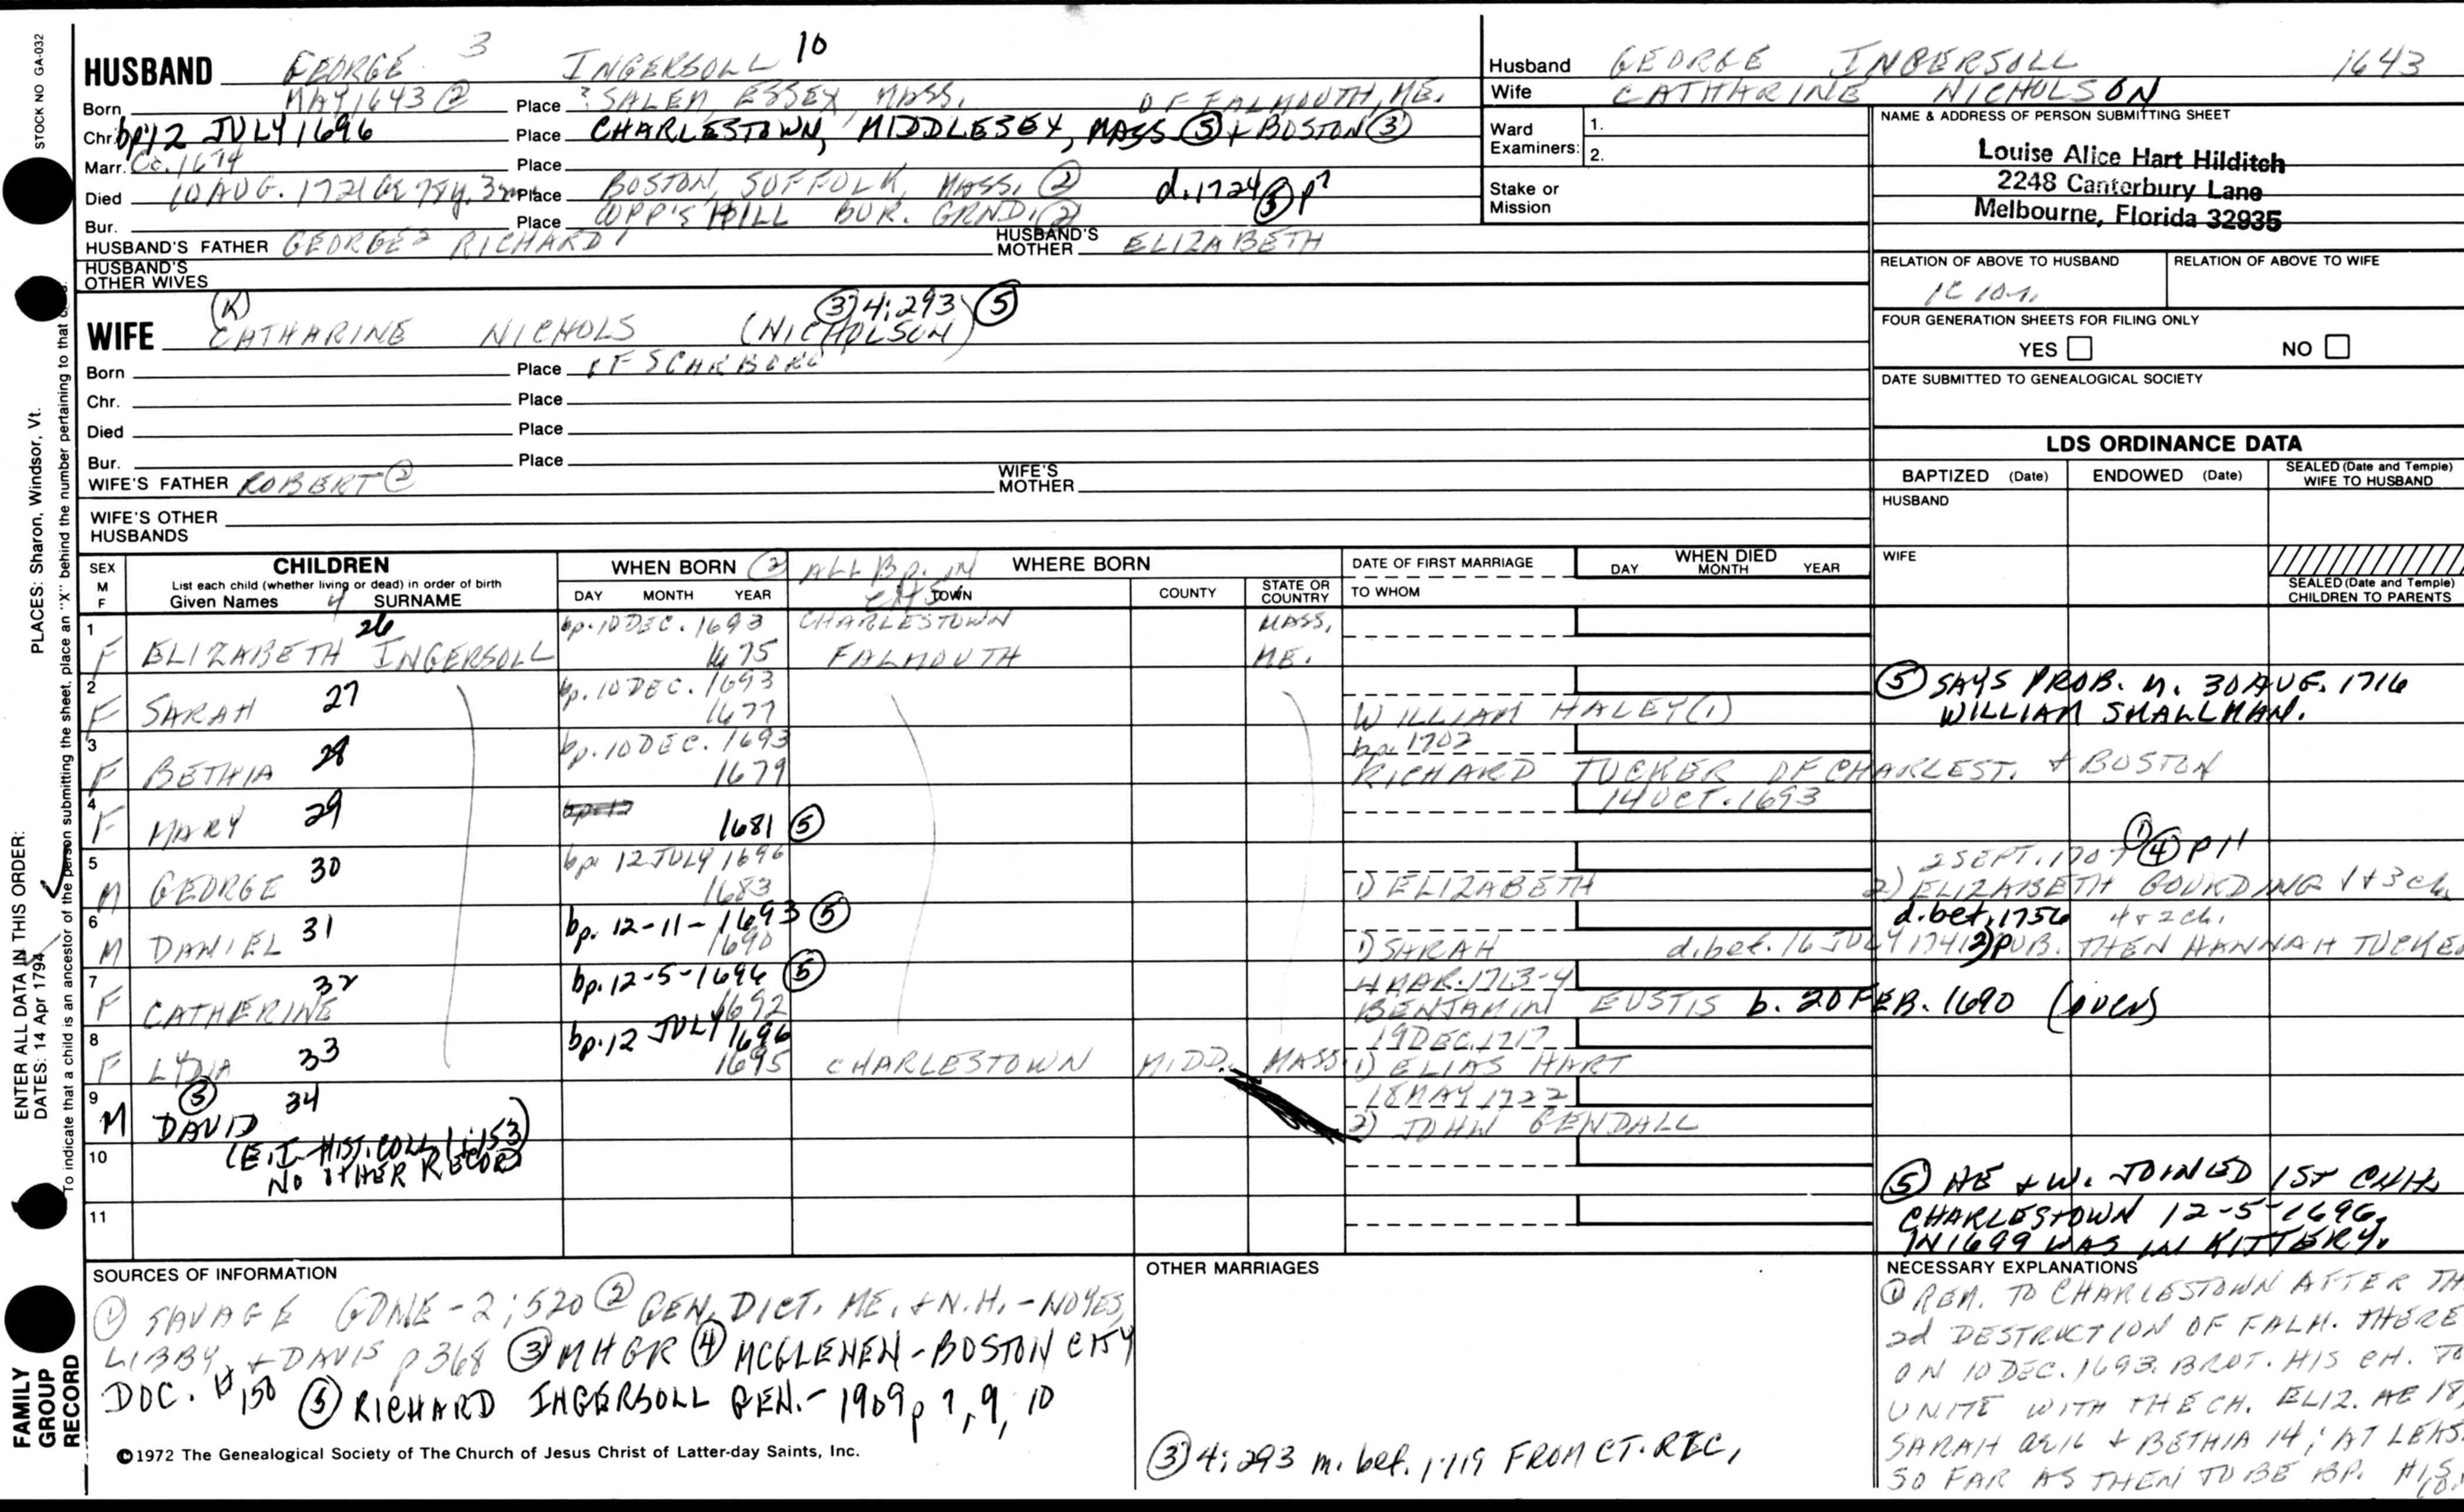 STOCK NO GA-032
HUSBAND GEORGE 3 INGERSOLL 10
Born MAY 1643 ② Place ? SALEM, ESSEX, MASS. OF FALMOUTH, ME.
Chr. bp. 12 JULY 1696 Place CHARLESTOWN, MIDDLESEX, MASS ⑤ + BOSTON ③
Marr. Ca. 1674 Place
Died 10 AUG. 1721 Place BOSTON, SUFFOLK, MASS. ② d. 1724 ⑤ p7
Bur. Place COPP'S HILL BUR. GRND. ②
HUSBAND'S FATHER GEORGE 2 RICHARD 1 HUSBAND'S MOTHER ELIZABETH
HUSBAND'S OTHER WIVES
(K) ③ 4:293 ⑤
WIFE CATHARINE NICHOLS (NICHOLSON)
Born Place OF SCARBORO
Chr. Place
Died Place
Bur. Place
WIFE'S FATHER ROBERT ② WIFE'S MOTHER
WIFE'S OTHER HUSBANDS
Husband GEORGE INGERSOLL 1643
Wife CATHARINE NICHOLSON
Ward Examiners: 1.
2.
Stake or Mission
NAME & ADDRESS OF PERSON SUBMITTING SHEET
Louise Alice Hart Hilditch
2248 Canterbury Lane
Melbourne, Florida 32935
RELATION OF ABOVE TO HUSBAND RELATION OF ABOVE TO WIFE
1C 10r.
FOUR GENERATION SHEETS FOR FILING ONLY
YES NO
DATE SUBMITTED TO GENEALOGICAL SOCIETY
LDS ORDINANCE DATA
BAPTIZED (Date) ENDOWED (Date) SEALED (Date and Temple) WIFE TO HUSBAND
HUSBAND
WIFE
SEALED (Date and Temple) CHILDREN TO PARENTS
SEX M F
CHILDREN
List each child (whether living or dead) in order of birth
Given Names 4 SURNAME
WHEN BORN ② ALL BP. IN WHERE BORN
DAY MONTH YEAR TOWN COUNTY STATE OR COUNTRY
DATE OF FIRST MARRIAGE
TO WHOM
WHEN DIED
DAY MONTH YEAR
1 26 bp. 10 DEC. 1693 CHARLESTOWN MASS.
F ELIZABETH INGERSOLL 1675 FALMOUTH ME.
2 27 bp. 10 DEC. 1693
F SARAH 1677 WILLIAM HALEY (1)
⑤ SAYS PROB. m. 30 AUG. 1716
WILLIAM SMALLMAN.
3 28 bp. 10 DEC. 1693 bp. 1702
F BETHIA 1679 RICHARD TUCKER OF CHARLEST. + BOSTON
4 29 14 OCT. 1693
F MARY 1681 ⑤
5 30 bp. 12 JULY 1696 2 SEPT. 1707 ① ④ p11
M GEORGE 1683 1) ELIZABETH 2) ELIZABETH GOURDING 1+3 ch.
6 31 bp. 12-11-1693 ⑤ d. bet. 1756 4 + 2 ch.
M DANIEL 1690 1) SARAH d. bef. 16 JULY 1741 2) PUB. THEN HANNAH TUCKE
7 32 bp. 12-5-1696 ⑤ 4 MAR. 1713-4
F CATHERINE 1692 BENJAMIN EUSTIS b. 20 FEB. 1690
8 33 bp. 12 JULY 1696 19 DEC. 1717
F LYDIA 1695 CHARLESTOWN MIDD. MASS. 1) ELIAS HART
9 ③ 34 18 MAY 1722
M DAVID 2) JOHN GENDALL
10 (E.I. HIST. COLL 1:153)
NO OTHER RECORD
11
⑤ HE + W. JOINED 1ST CHH.
CHARLESTOWN 12-5-1696.
IN 1699 WAS IN KITTERY.
SOURCES OF INFORMATION
① SAVAGE GDNE - 2:520 ② GEN. DICT. ME. + N.H. - NOYES,
LIBBY, + DAVIS p 368 ③ MHGR ④ MCGLENEN - BOSTON CITY
DOC. # 150 ⑤ RICHARD INGERSOLL GEN. - 1909 p 7, 9, 10
©1972 The Genealogical Society of The Church of Jesus Christ of Latter-day Saints, Inc.
OTHER MARRIAGES
③ 4:293 m. bef. 1719 FROM CT. REC.
NECESSARY EXPLANATIONS
① REM. TO CHARLESTOWN AFTER TH
2d DESTRUCTION OF FALM. THERE
ON 10 DEC. 1693. BROT. HIS CH. TO
UNITE WITH THE CH. ELIZ. AE 18,
SARAH ae 16 + BETHIA 14; AT LEAS
SO FAR AS THEN TO BE BP. HIS
ENTER ALL DATA IN THIS ORDER:
DATES: 14 Apr 1794
PLACES: Sharon, Windsor, Vt.
To indicate that a child is an ancestor of the person submitting the sheet, place an "X" behind the number pertaining to that
FAMILY
GROUP
RECORD